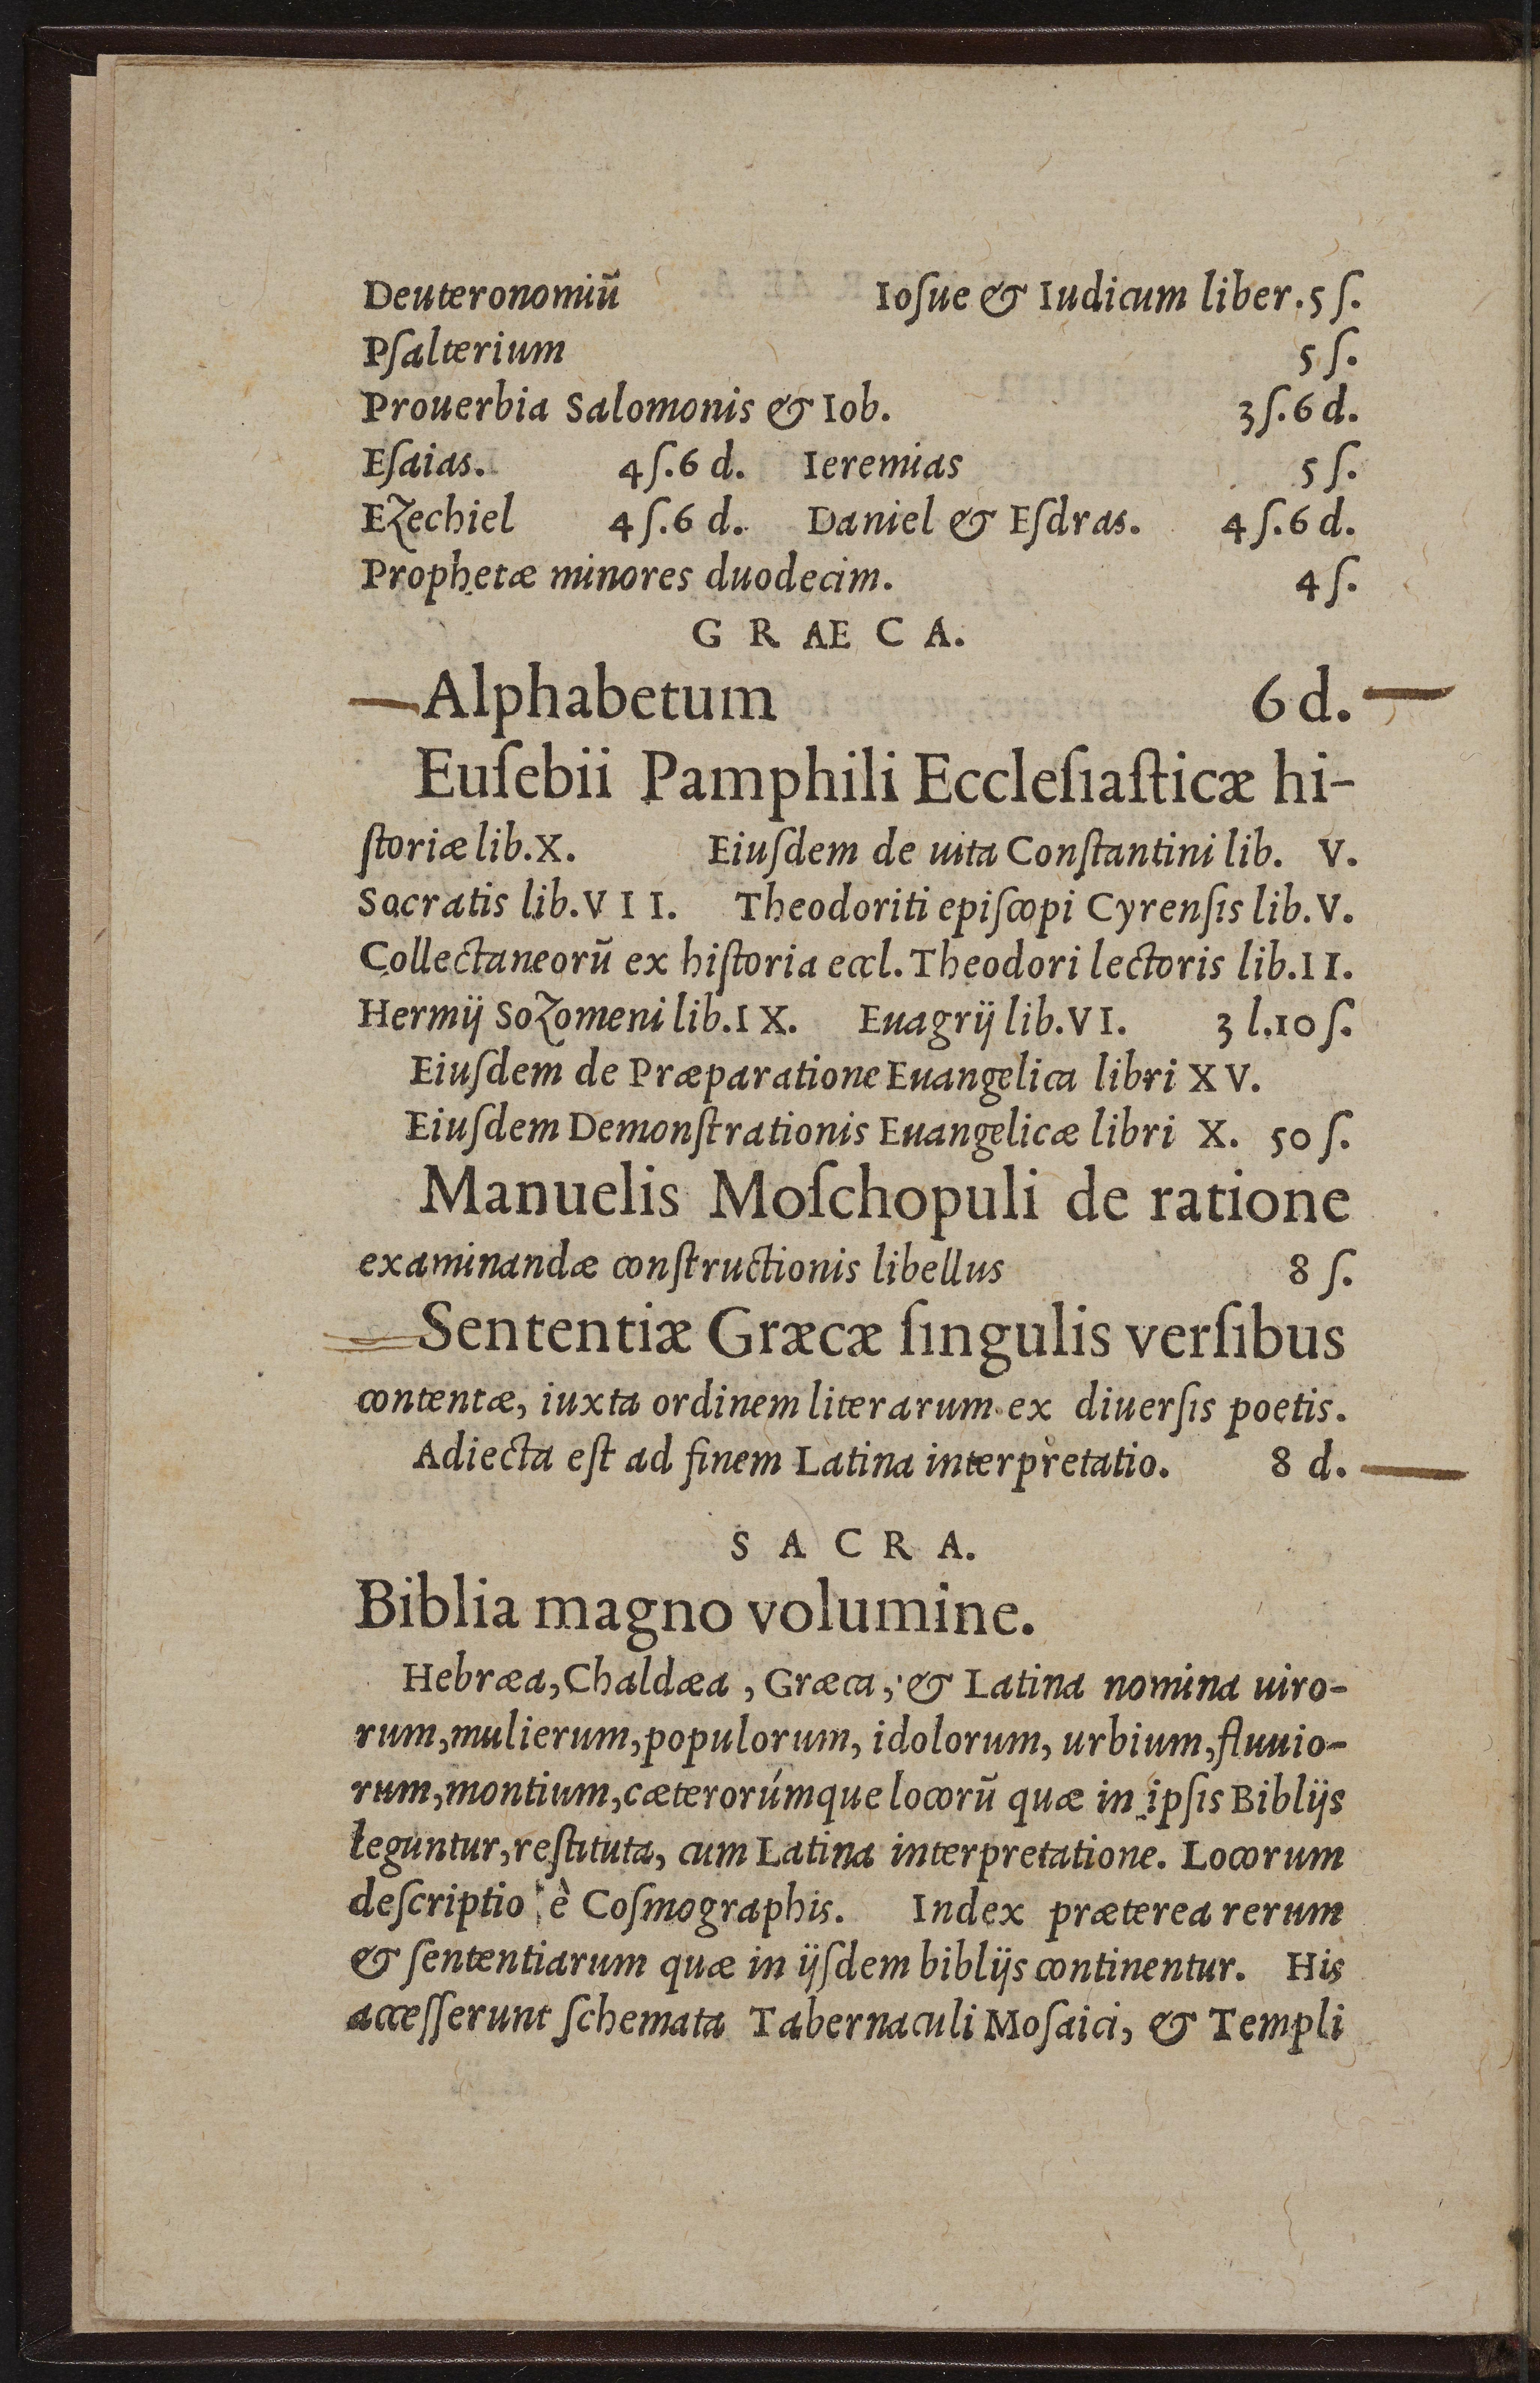 Deuteronomiū Ioſue & Iudicum liber. 5 ſ.
Pſalterium 5 ſ.
Prouerbia Salomonis & Iob. 3 ſ. 6 d.
Eſaias. 4 ſ. 6 d. Ieremias 5 ſ.
Ezechiel 4 ſ. 6 d. Daniel & Eſdras. 4 ſ. 6 d.
Prophetæ minores duodecim. 4 ſ.
G R AE C A.
Alphabetum 6 d.
Euſebii Pamphili Eccleſiaſticæ hi-
ſtoriæ lib. X. Eiuſdem de uita Conſtantini lib. V.
Socratis lib. V I I. Theodoriti epiſcopi Cyrenſis lib. V.
Collectaneorū ex hiſtoria eccl. Theodori lectoris lib. I I.
Hermij Sozomeni lib. I X. Euagrij lib. V I. 3 l. 10 ſ.
Eiuſdem de Præparatione Euangelica libri X V.
Eiuſdem Demonſtrationis Euangelicæ libri X. 50 ſ.
Manuelis Moſchopuli de ratione
examinandæ conſtructionis libellus 8 ſ.
Sententiæ Græcæ ſingulis verſibus
contentæ, iuxta ordinem literarum ex diuerſis poetis.
Adiecta eſt ad finem Latina interpretatio. 8 d.
S A C R A.
Biblia magno volumine.
Hebræa, Chaldæa, Græca, & Latina nomina uiro-
rum, mulierum, populorum, idolorum, urbium, fluuio-
rum, montium, cæterorúmque locorū quæ in ipſis Biblijs
leguntur, reſtituta, cum Latina interpretatione. Locorum
deſcriptio è Coſmographis. Index præterea rerum
& ſententiarum quæ in ijſdem biblijs continentur. His
acceſſerunt ſchemata Tabernaculi Moſaici, & Templi